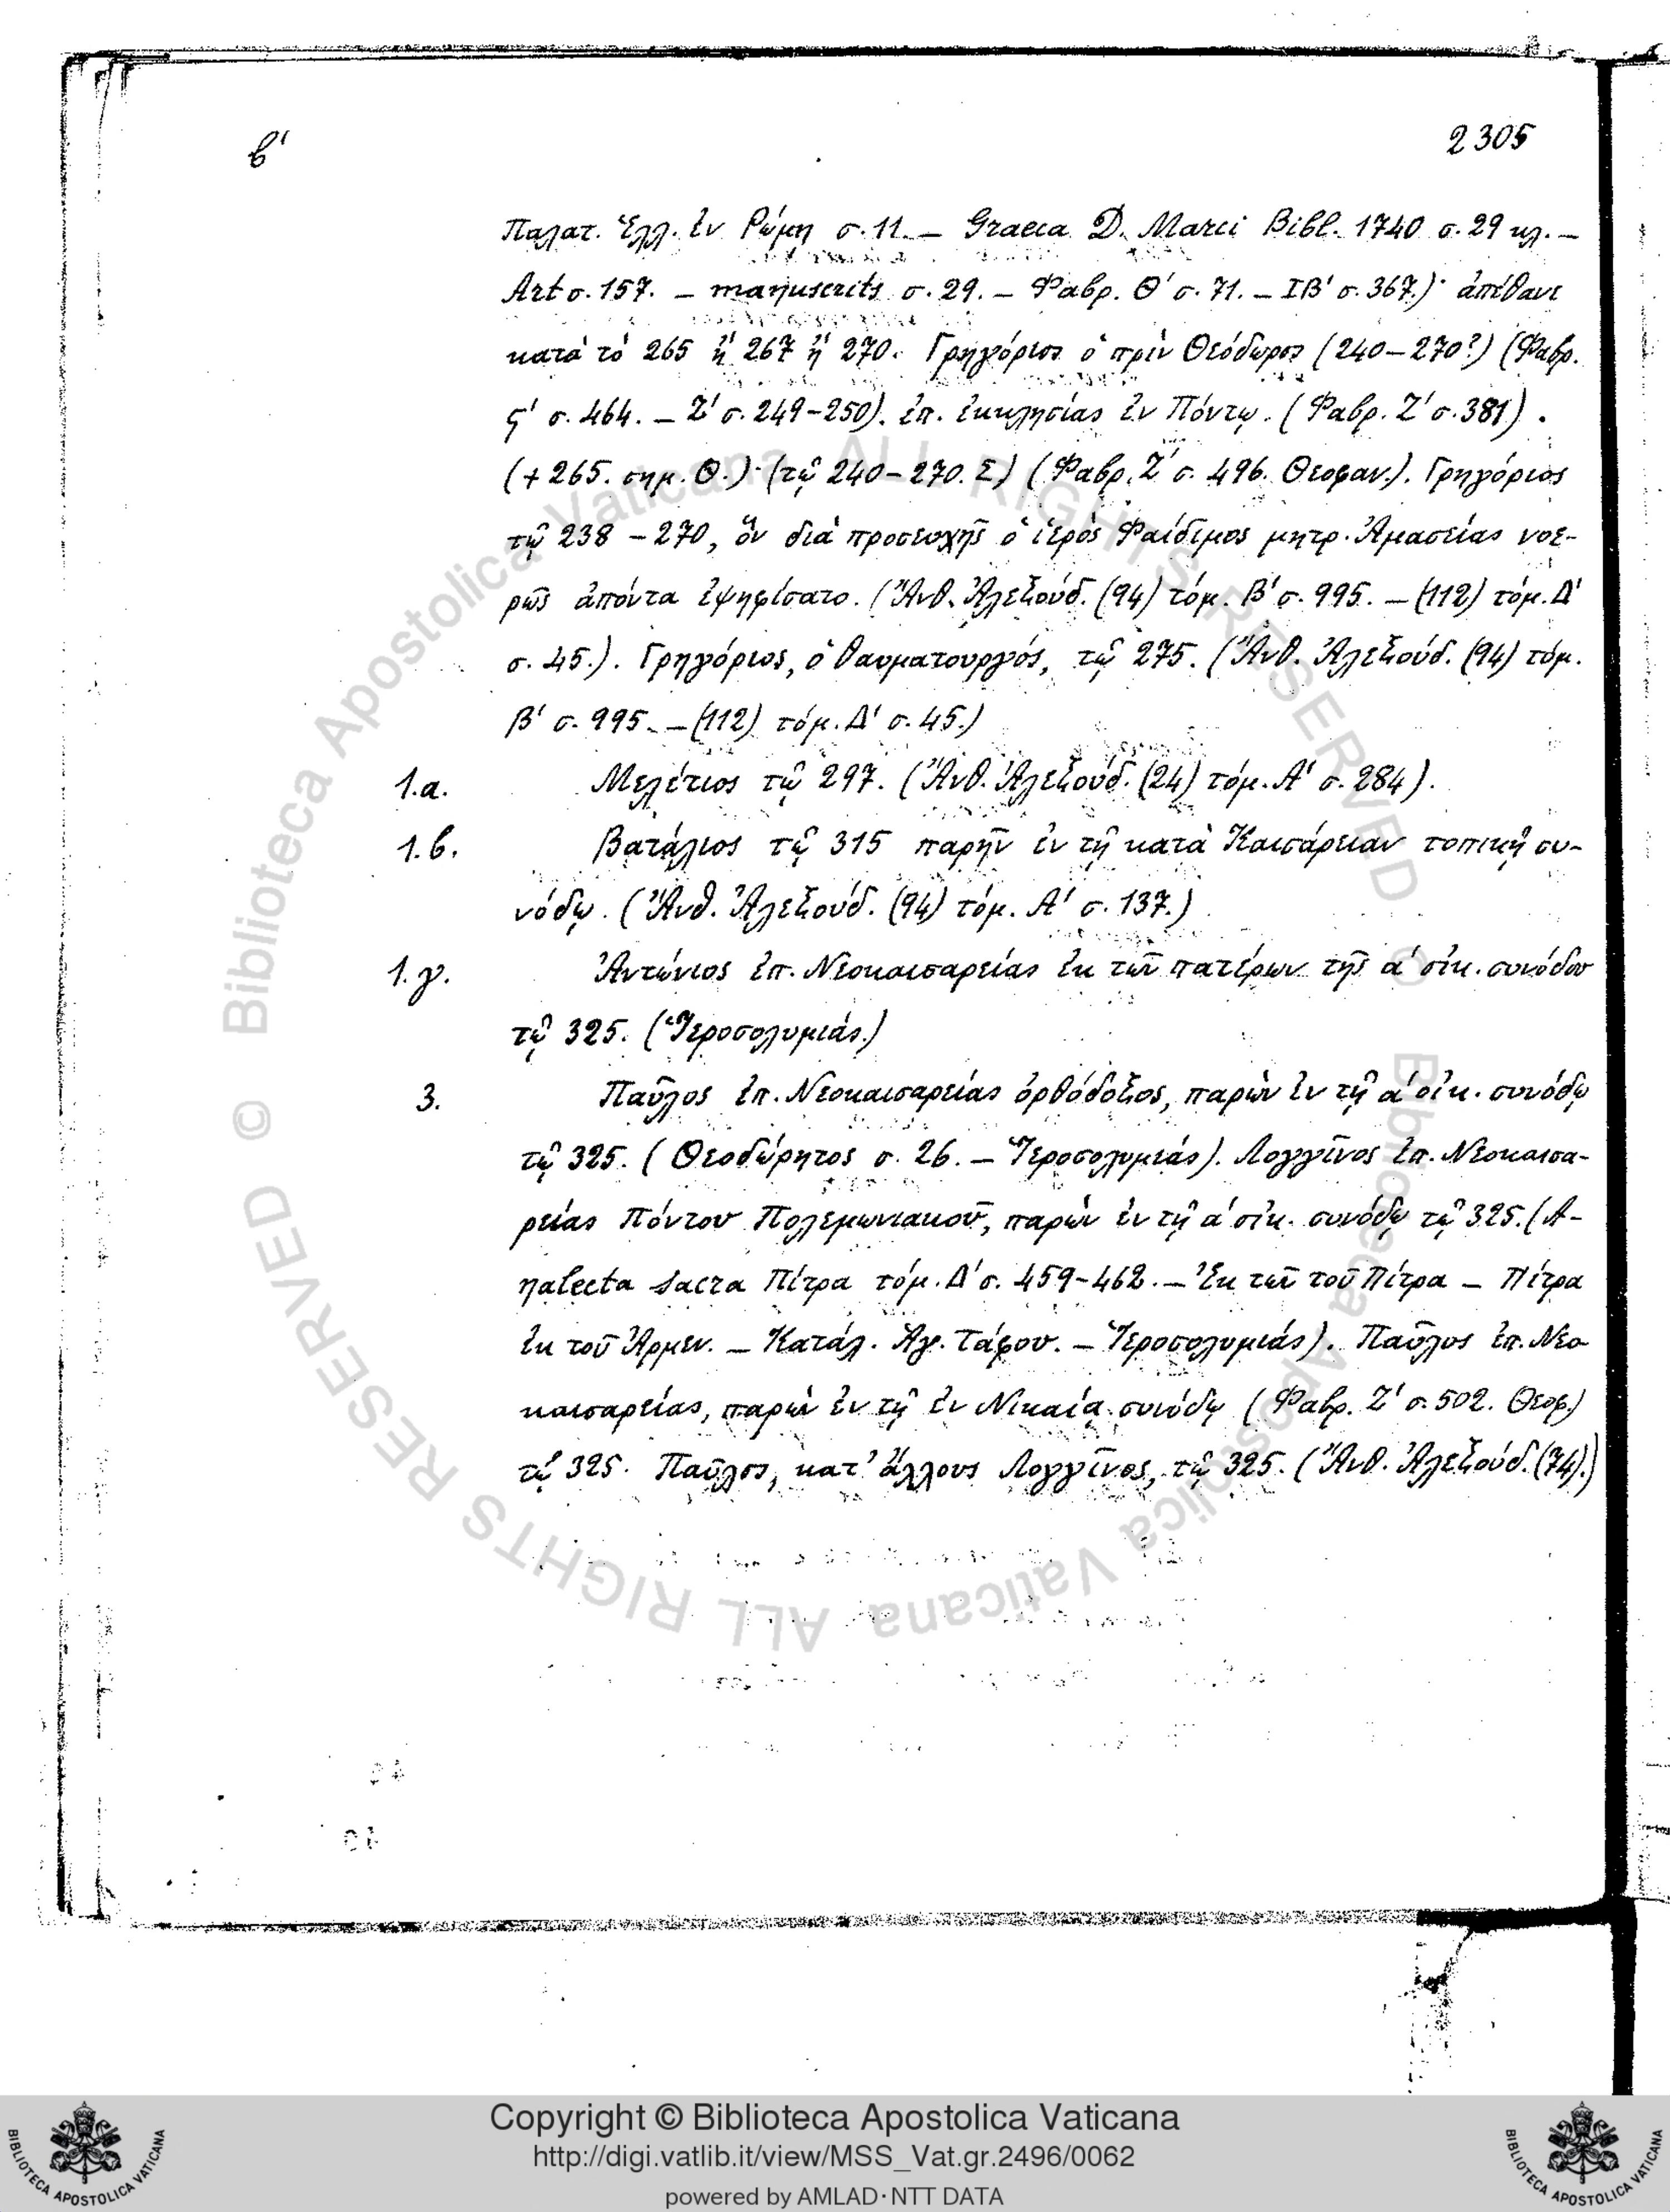 β' 2305
Παλατ. Ἑλλ. ἐν Ρώμῃ σ. 11. — Graeca D. Marci Bibl. 1740 σ. 29 κλ. —
Art σ. 157. — manuscrits σ. 29. — Φαβρ. Θ' σ. 71. — ΙΒ' σ. 367.)· ἀπέθανε
κατὰ τὸ 265 ἢ 267 ἢ 270. Γρηγόριος ὁ πρὶν Θεόδωρος (240–270?) (Φαβρ.
ς' σ. 464. — Ζ' σ. 249–250). ἐπ. ἐκκλησίας ἐν Πόντῳ. (Φαβρ. Ζ' σ. 381).
(+ 265. σημ. Θ.)· (τῷ 240–270. Σ) (Φαβρ. Ζ' σ. 496. Θεοφαν.). Γρηγόριος
τῷ 238 – 270, ὃν διὰ προσευχῆς ὁ ἱερὸς Φαίδιμος μητρ. Ἀμασείας νοε-
ρῶς ἀπόντα ἐψηφίσατο. (Ἄνθ. Ἀλεξούδ. (94) τόμ. Β' σ. 995. — (112) τόμ. Δ'
σ. 45.). Γρηγόριος, ὁ θαυματουργός, τῷ 275. (Ἄνθ. Ἀλεξούδ. (94) τόμ.
Β' σ. 995. — (112) τόμ. Δ' σ. 45.)
1.α. Μελέτιος τῷ 297. (Ἄνθ. Ἀλεξούδ. (24) τόμ. Α' σ. 284).
1.β. Βατάλιος τῷ 315 παρῆν ἐν τῇ κατὰ Καισάρειαν τοπικῇ συ-
νόδῳ. (Ἄνθ. Ἀλεξούδ. (94) τόμ. Α' σ. 137.)
1.γ. Ἀντώνιος ἐπ. Νεοκαισαρείας ἐκ τῶν πατέρων τῆς α' οἰκ. συνόδου
τῷ 325. (Ἱεροσολυμιάς.)
3. Παῦλος ἐπ. Νεοκαισαρείας ὀρθόδοξος, παρὼν ἐν τῇ α' οἰκ. συνόδῳ
τῷ 325. (Θεοδώρητος σ. 26. — Ἱεροσολυμιάς). Λογγῖνος ἐπ. Νεοκαισα-
ρείας Πόντου Πολεμωνιακοῦ, παρὼν ἐν τῇ α' οἰκ. συνόδῳ τῷ 325. (A-
nalecta sacra Πίτρα τόμ. Δ' σ. 459–462. — Ἐκ τῶν τοῦ Πίτρα — Πίτρα
ἐκ τοῦ Ἀρμεν. — Κατάλ. Ἁγ. Τάφου. — Ἱεροσολυμιάς). Παῦλος ἐπ. Νεο
καισαρείας, παρὼν ἐν τῇ ἐν Νικαίᾳ συνόδῳ (Φαβρ. Ζ' σ. 502. Θεοφ.)
τῷ 325. Παῦλος, κατ' ἄλλους Λογγῖνος, τῷ 325. (Ἄνθ. Ἀλεξούδ. (74).)
© Biblioteca Apostolica Vaticana ALL RIGHTS RESERVED © Biblioteca Apostolica Vaticana ALL RIGHTS RESERVED
Copyright © Biblioteca Apostolica Vaticana
http://digi.vatlib.it/view/MSS_Vat.gr.2496/0062
powered by AMLAD · NTT DATA
BIBLIOTECA APOSTOLICA VATICANA
BIBLIOTECA APOSTOLICA VATICANA